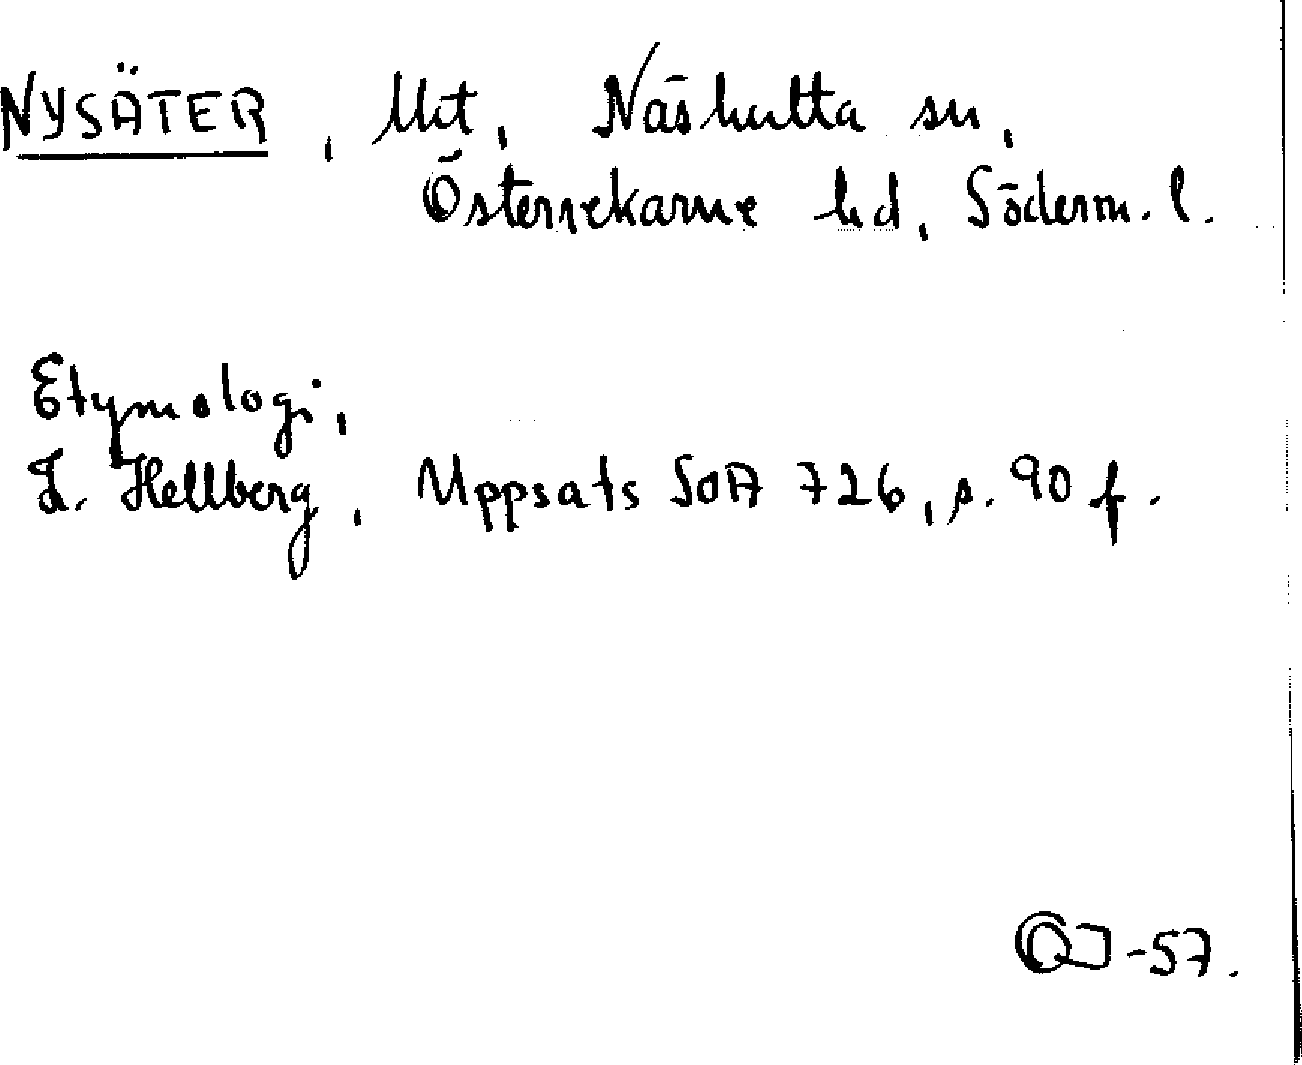 NYSÄTER, Ukt, Näshulta sn,
Österrekarne hd, Söderm. l.
Etymologi,
L. Hellberg, Uppsats SOA 726, s. 90 f.
-57.